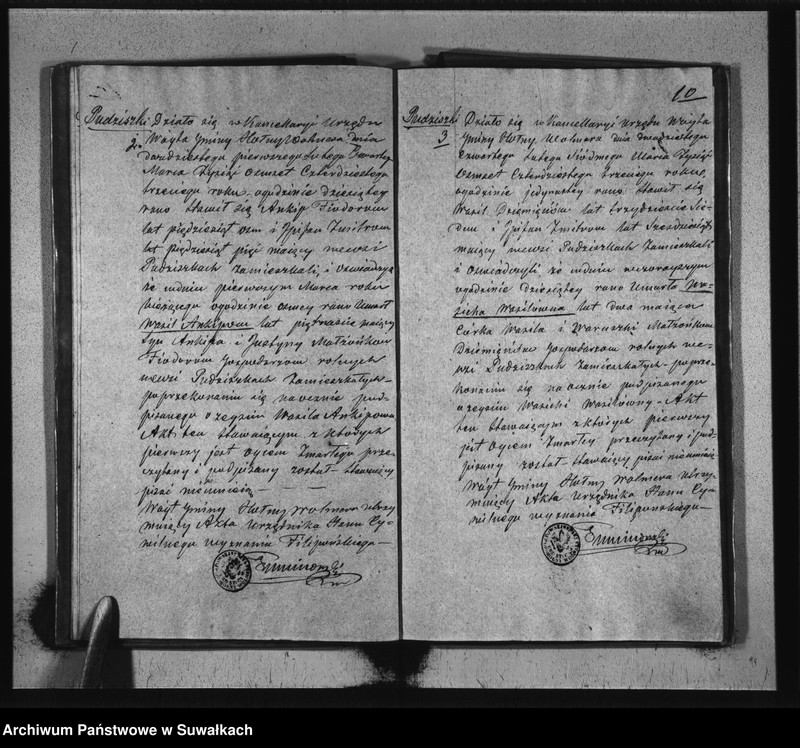 Pudziszki Działo się w Kancellaryi Urzędu
2. Woyta Gminy Hołny Wolmera dnia
dwudziestego pierwszego Lutego Czwartego
Marca Tysiąc Osmset Czterdziestego
trzeciego roku, ogodzinie dziesiątey
rano stawił się Ankip Fiodorow
lat pięćdziesiąt osm i Jzifan Dmitrow
lat pięćdziesiąt pięć maiący wewsi
Pudziszkach zamieszkali, i Oświadczyli
że wdniu pierwszym Marca roku
bieżącego ogodzinie osmey rano Umarł
Wasil Ankipow lat piętnaście maiący
syn Ankipa i Justyny Małżonków
Fiodorow Gospodarzow rolnych
wewsi Pudziszkach Zamieszkałych –
poprzekonaniu się naocznie pod-
pisanego o zeyściu Wasila Ankipowa
Akt ten stawaiącym z których
pierwszy jest Oycem Zmarłego prze-
czytany i podpisany został – stawaiący
pisać nieumieią
Wóyt Gminy Hołny Wolmera utrzy-
muiący Akta Urzędnika Stanu Cy-
wilnego wyznania Filipowskiego –
10
Pudziszki Działo się w Kancellaryi Urzędu Woyta
3 Gminy Hołny Wolmera dnia dwudziestego
Czwartego Lutego Siódmego Marca Tysiąc
Osmset Czterdziestego trzeciego roku,
ogodzinie jedynastey rano stawił się
Wasil lat trzydzieście Sie-
dem i Jzifan Dmitrow lat Sześćdziesiąt
maiący wewsi Pudziszkach Zamieszkali
i oświadczyli że wdniu wczorayszym
ogodzinie dziesiątey rano Umarła Wa-
sicha Wasilowna lat dwa maiąca
Córka Wasila i Warwarki Małżonków
Gospodarzow rolnych we-
wsi Pudziszkach zamieszkałych – poprze-
konaniu się naocznie podpisanego
o zeyściu Wasichi Wasilówny – Akt
ten stawaiącym z których pierwszy
jest Oycem Zmarłey przeczytany i pod-
pisany został stawaiący pisać nieumieią
Wóyt Gminy Hołny Wolmera utrzy-
muiący Akta Urzędnika Stanu Cy-
wilnego wyznania Filipowskiego –
Archiwum Państwowe w Suwałkach